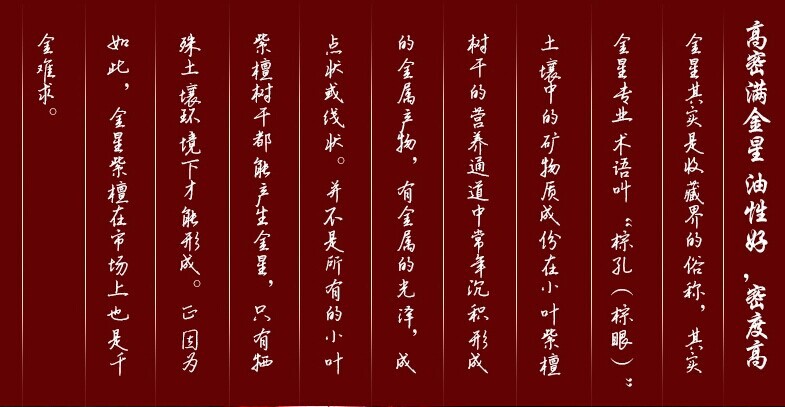 高密满金星 油性好，密度高
金星其实是收藏界的俗称，其实
金星专业术语叫“棕孔（棕眼）：
土壤中的矿物质成份在小叶紫檀
树干的营养通道中常年沉积形成
的金属产物，有金属的光泽，成
点状或线状。并不是所有的小叶
紫檀树干都能产生金星，只有牺
殊土壤环境下才能形成。正因为
如此，金星紫檀在市场上也是千
金难求。